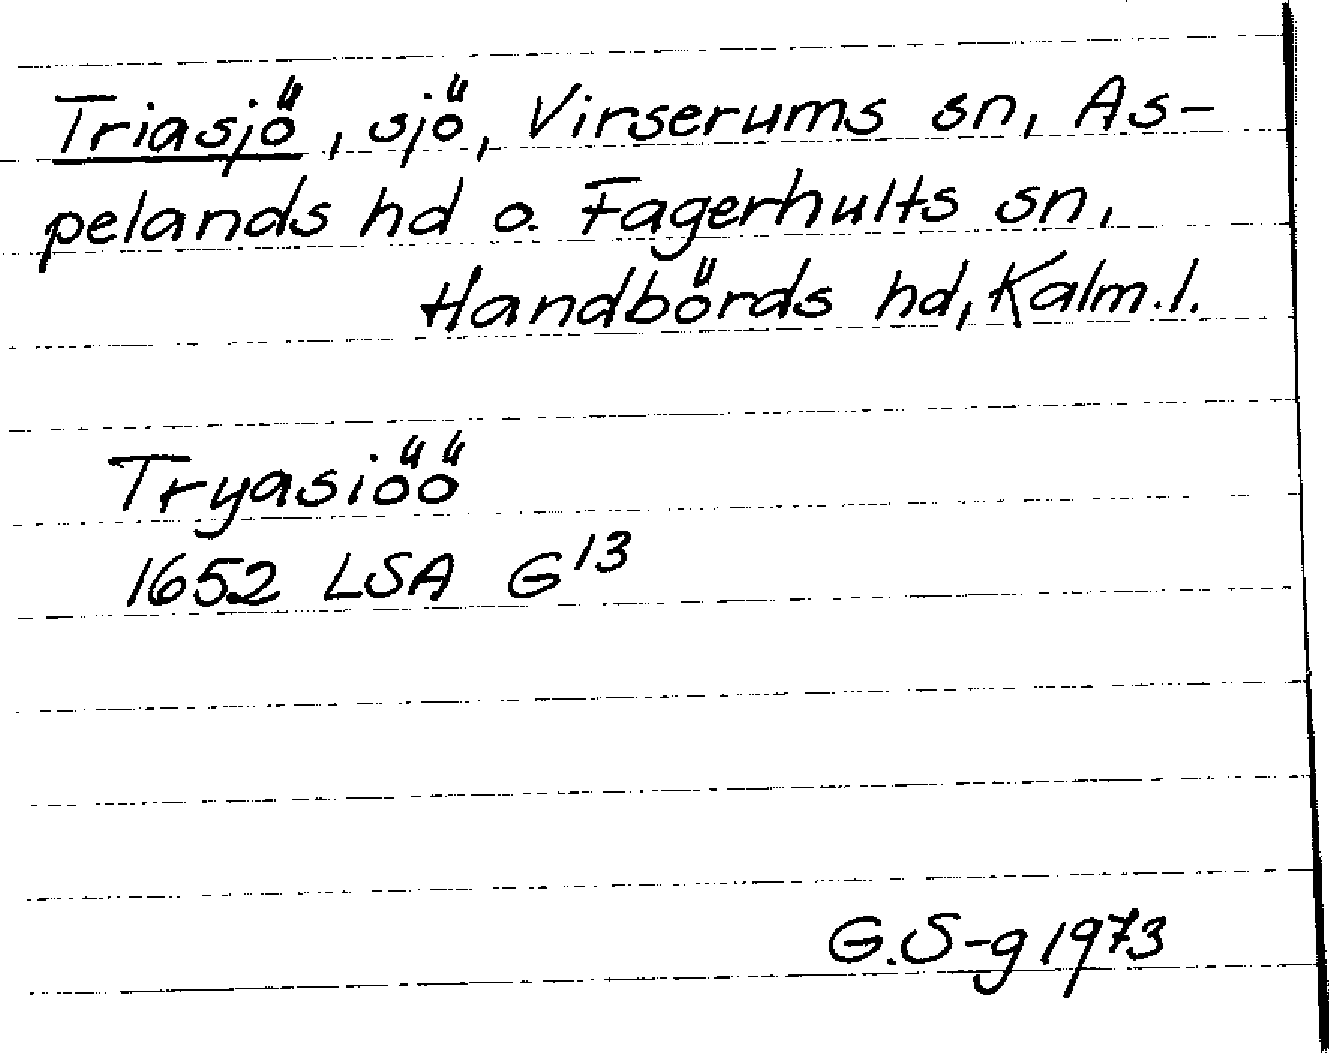 Triasjö, sjö, Virserums sn, As-
pelands hd o. Fagerhults sn,
Handbörds hd, Kalm.l.
Tryasiöö
1652 LSA G13
G.S-g 1973